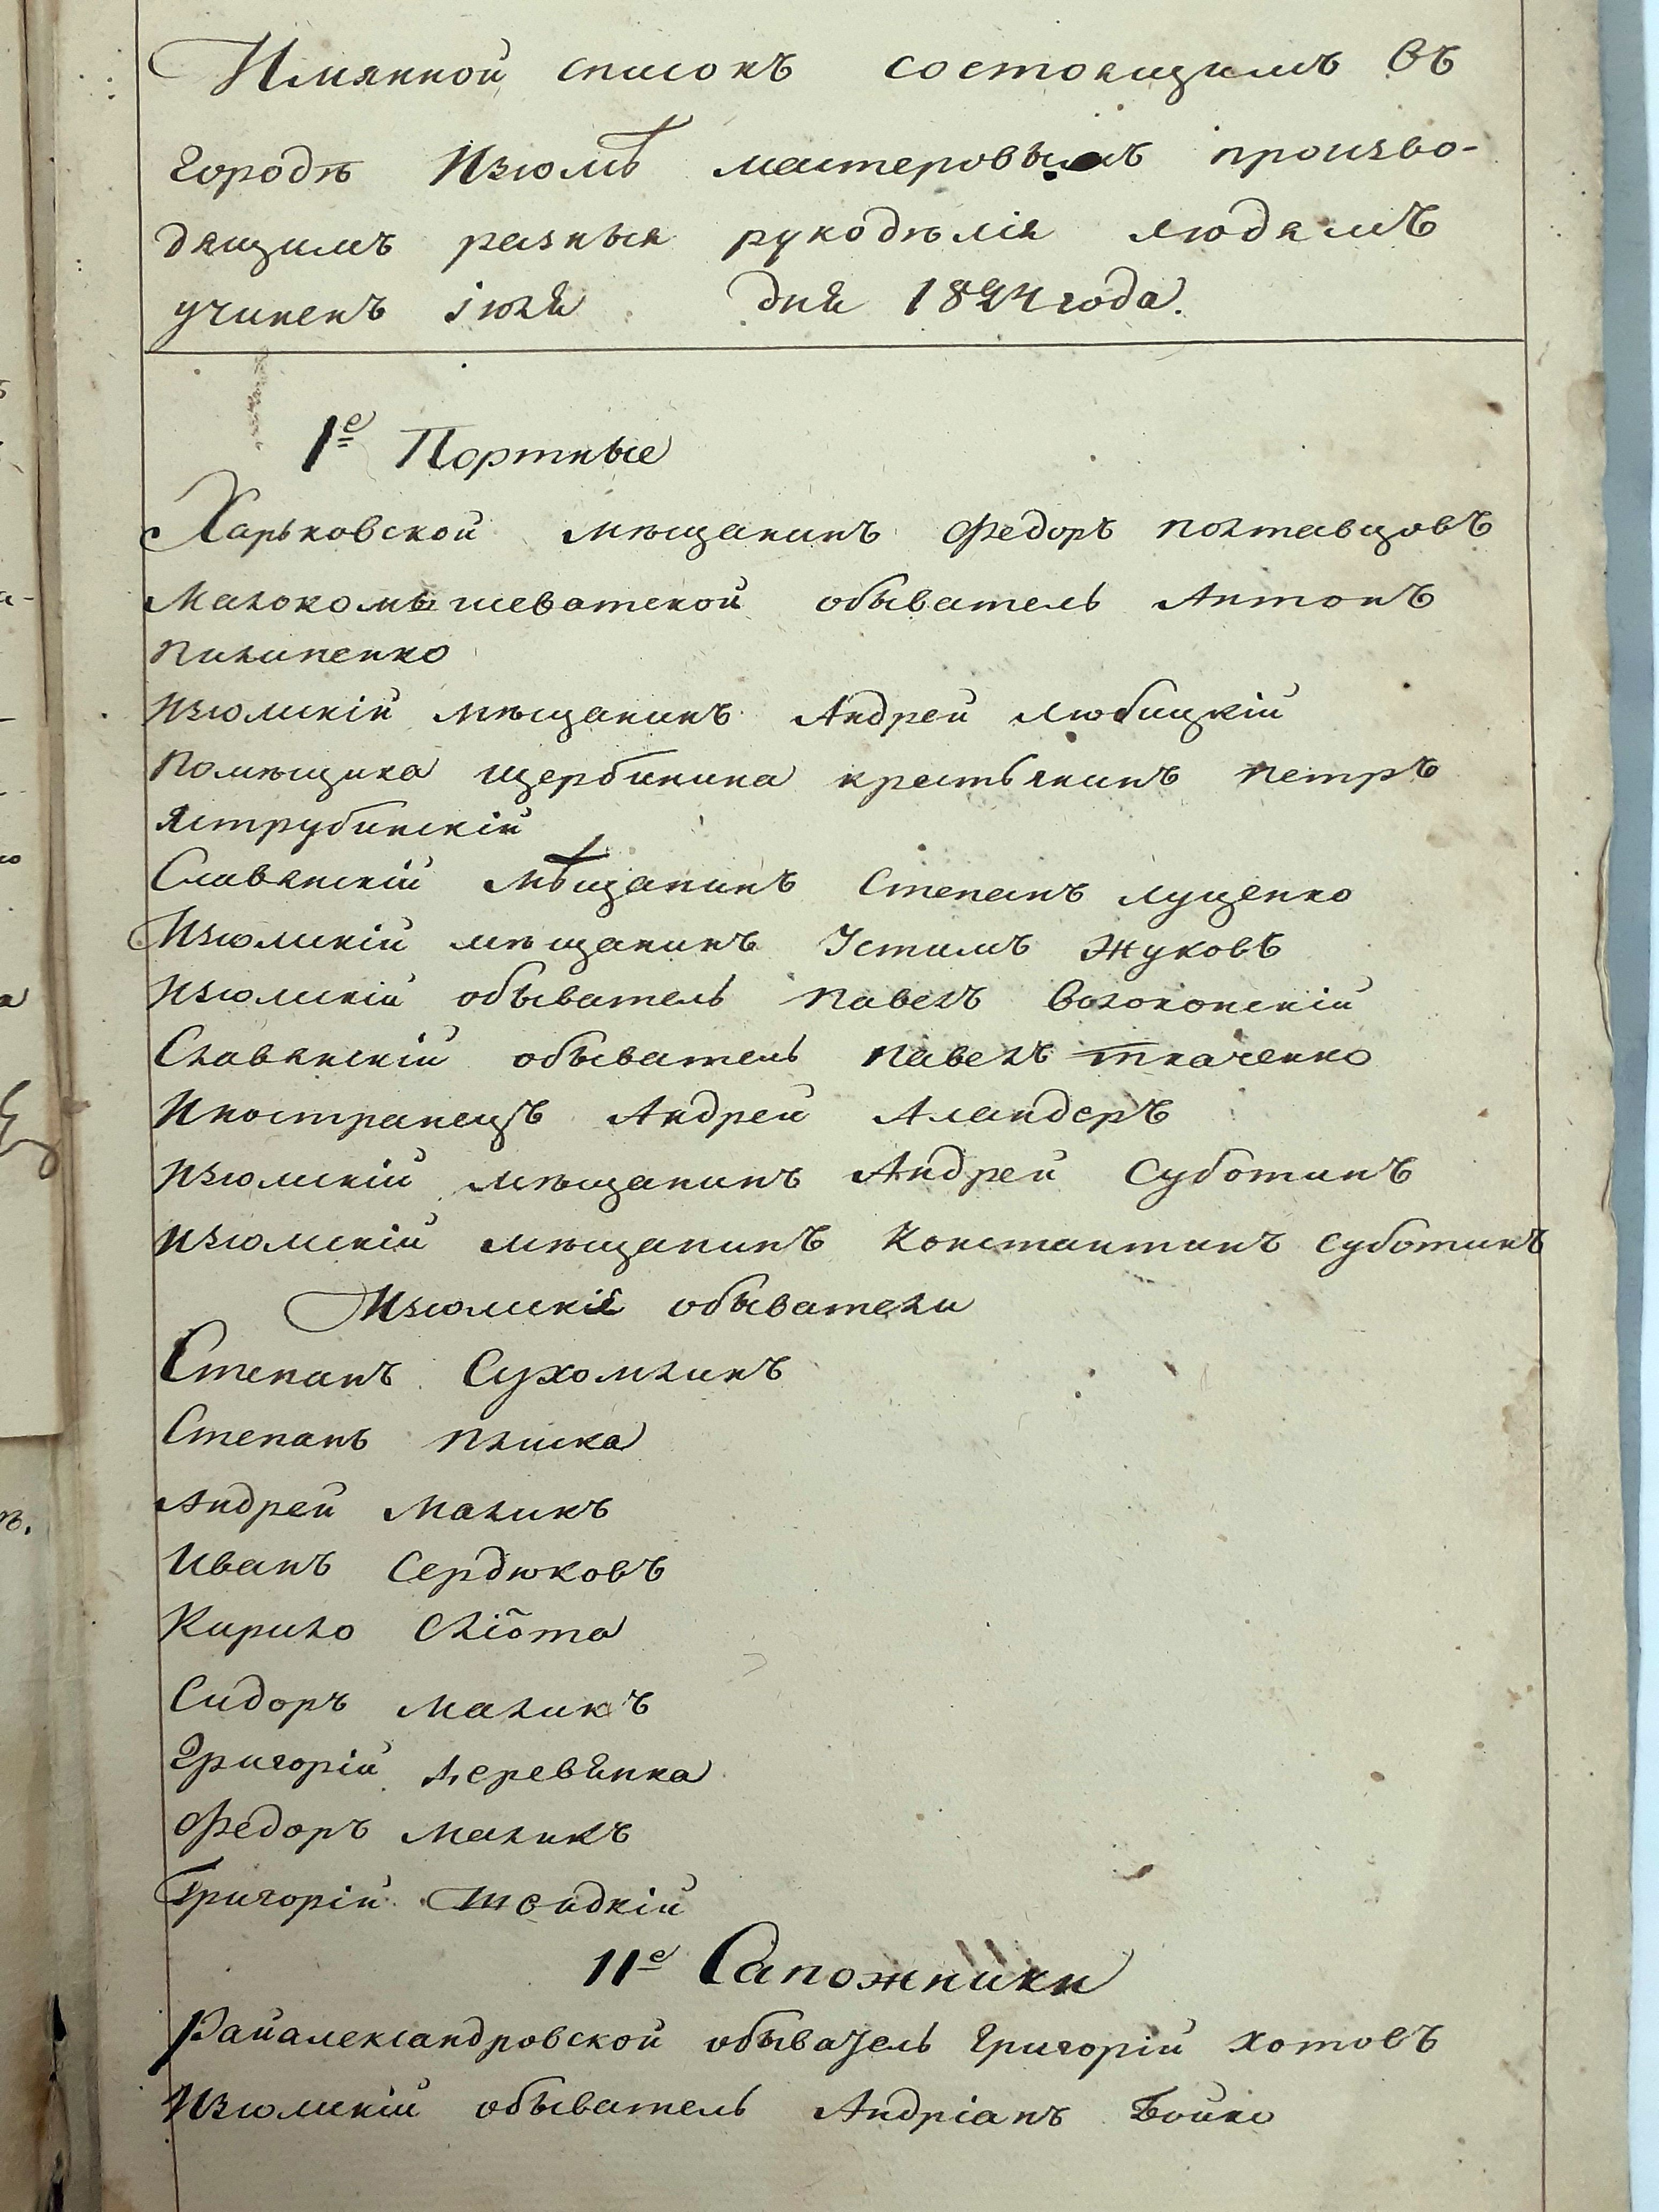 Имянной списокъ состоящимъ въ
городѣ Изюмѣ мастеровымъ произво-
дящимъ разныя рукодѣлія людямъ
учиненъ іюля дня 1824 года.
1е Портные
Харьковской мѣщанинъ Федоръ Полтавцовъ
Малокомышеватской обыватель Антонъ
Пилипенко
Изюмскій мѣщанинъ Андрей Любицкій
Помѣщика Щербинина крестьянинъ Петръ
Яструбинскій
Славянскій мѣщанинъ Степанъ Луценко
Изюмскій мѣщанинъ Устимъ Жуковъ
Изюмскій обыватель Павелъ Волоконскій
Славянскій обыватель Павелъ Ткаченко
Иностранецъ Андрей Аландеръ
Изюмскій мѣщанинъ Андрей Суботинъ
Изюмскій мѣщанинъ Константинъ Суботинъ
Изюмскіе обыватели
Степанъ Сухомлинъ
Степанъ Плиска
Андрей Маликъ
Иванъ Сердюковъ
Кирило Сліота
Сидоръ Маликъ
Григорій Деревянка
Федоръ Маликъ
Григорій
11е Сапожники
Райалександровской обыватель Григорій Хотовъ
Изюмскій обыватель Андріанъ Бойко